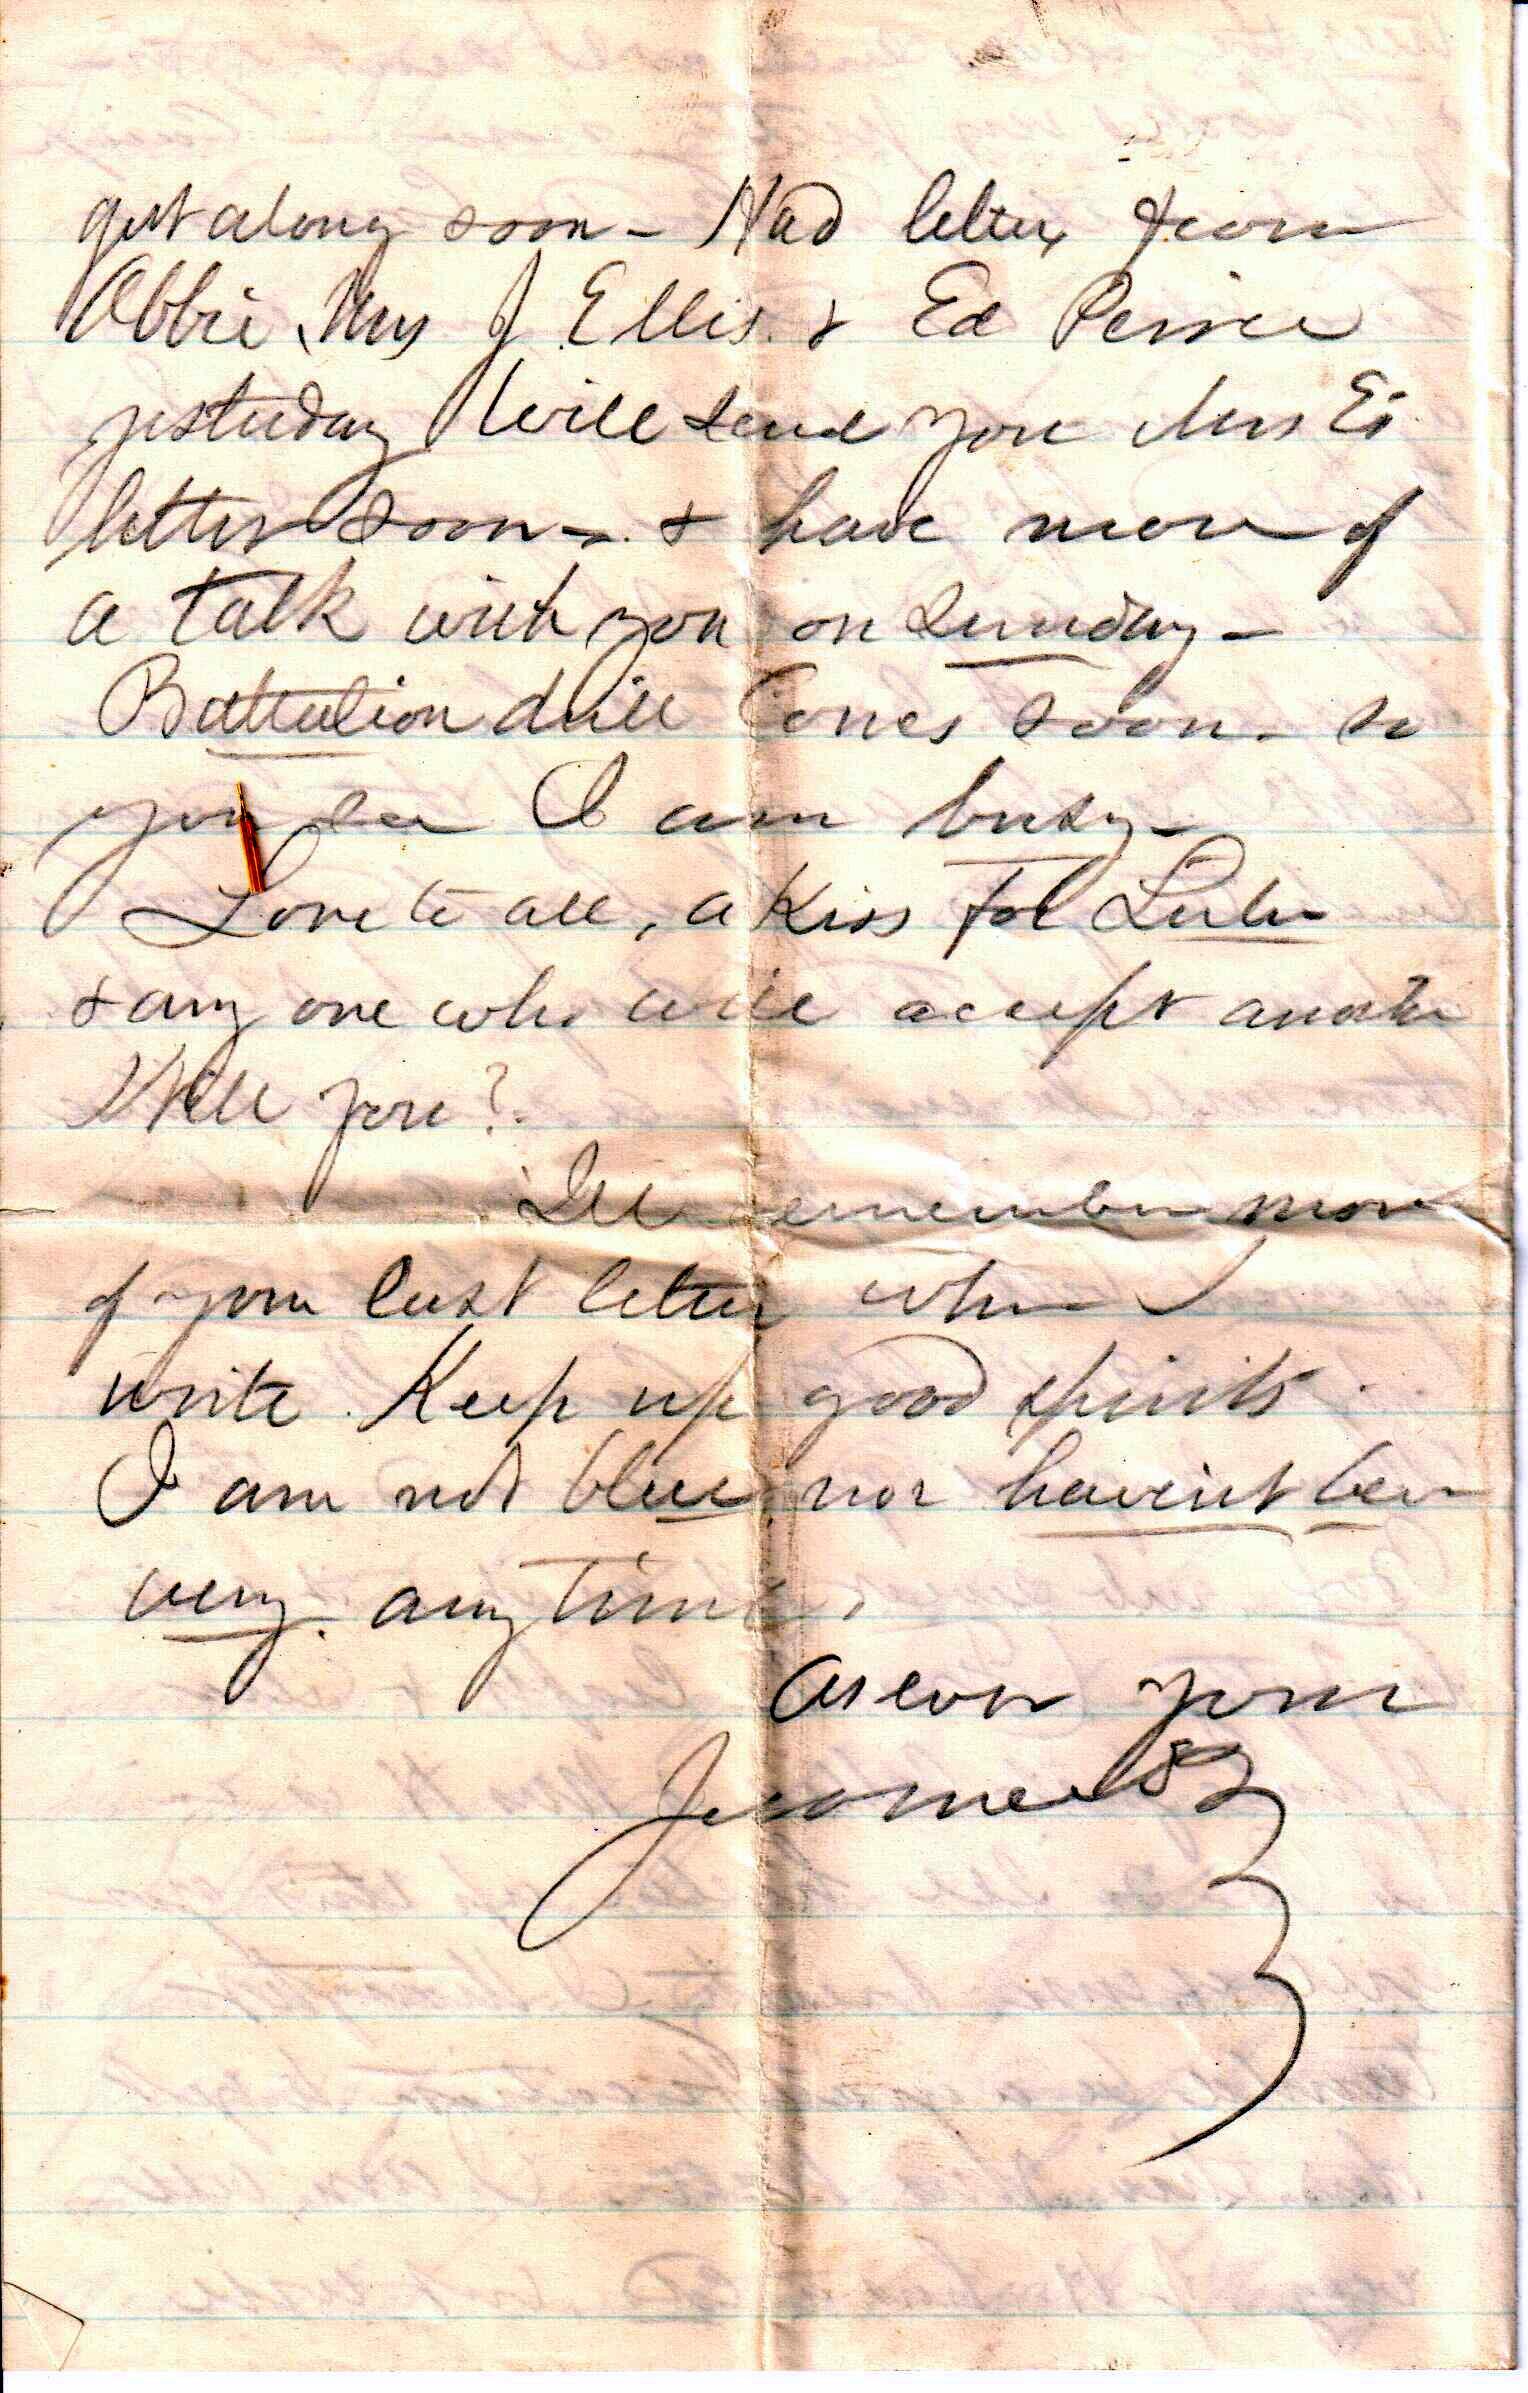 get along soon - Had letters from
Abbie, Mrs J. Ellis. & Ed Peirce
yesterday Will send you Mrs Es
letter soon - & have more of
a talk with you on Sunday -
Battalion drill comes soon - so
you see I am busy -
Love to all, a Kiss for Lulu
& any one who will accept another
Will you?
Ill remember more
of your last letter when I
write. Keep up good spirits.
I am not blue, nor havent been
very. any time.
As ever your
Jerome